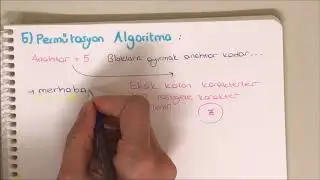 5) Permütasyon Algoritma :
Anahtar = 5 Bloklara ayırmak anahtar kadar...
→ merhaba Eksik kalan karakterler
rastgele karakter
Z